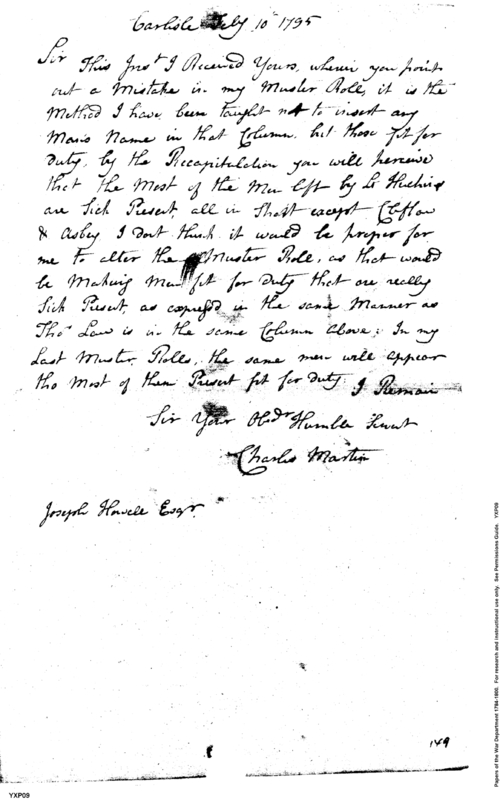 Carlisle Feby 10th 1795
Sir
This Inst I Received Yours, wherein you point
out a Mistake in my Muster Roll, it is the
Method I have been taught not to insert any
Mans Name in that Column, but those fit for
Duty, by the Recapitulation you will perceive
that the Most of the Men left by Lt
are Sick Present, all in Short except
& Asbey I dont think it would be proper for
me to alter the Muster Role, as that would
be Making Men fit for Duty that are really
Sick Present, as expressd in the same Manner as
Thos Law is in the same Column above; In my
Last Muster Rolls, the same men will appear
tho Most of them Present fit for duty I Remain
Sir Your Obdt Humble Servt
Charles Martin
Joseph Howell Esqr
149
YXP09
Papers of the War Department 1784-1800. For research and instructional use only. See Permissions Guide. YXP09